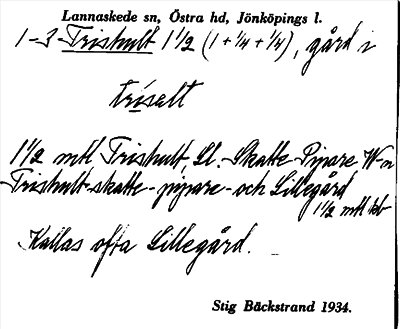 Lannaskede sn, Östra hd, Jönköpings l.
1-3 Trishult 1 1/2 (1 + 1/4 + 1/4), gård i
trisalt
1 1/2 mtl Trishult, Ll. Skatte-Pipare
Trishult skatte-pipare- och Lillegård
1 1/2 mtl
Kallas ofta Lillegård.
Stig Bäckstrand 1934.